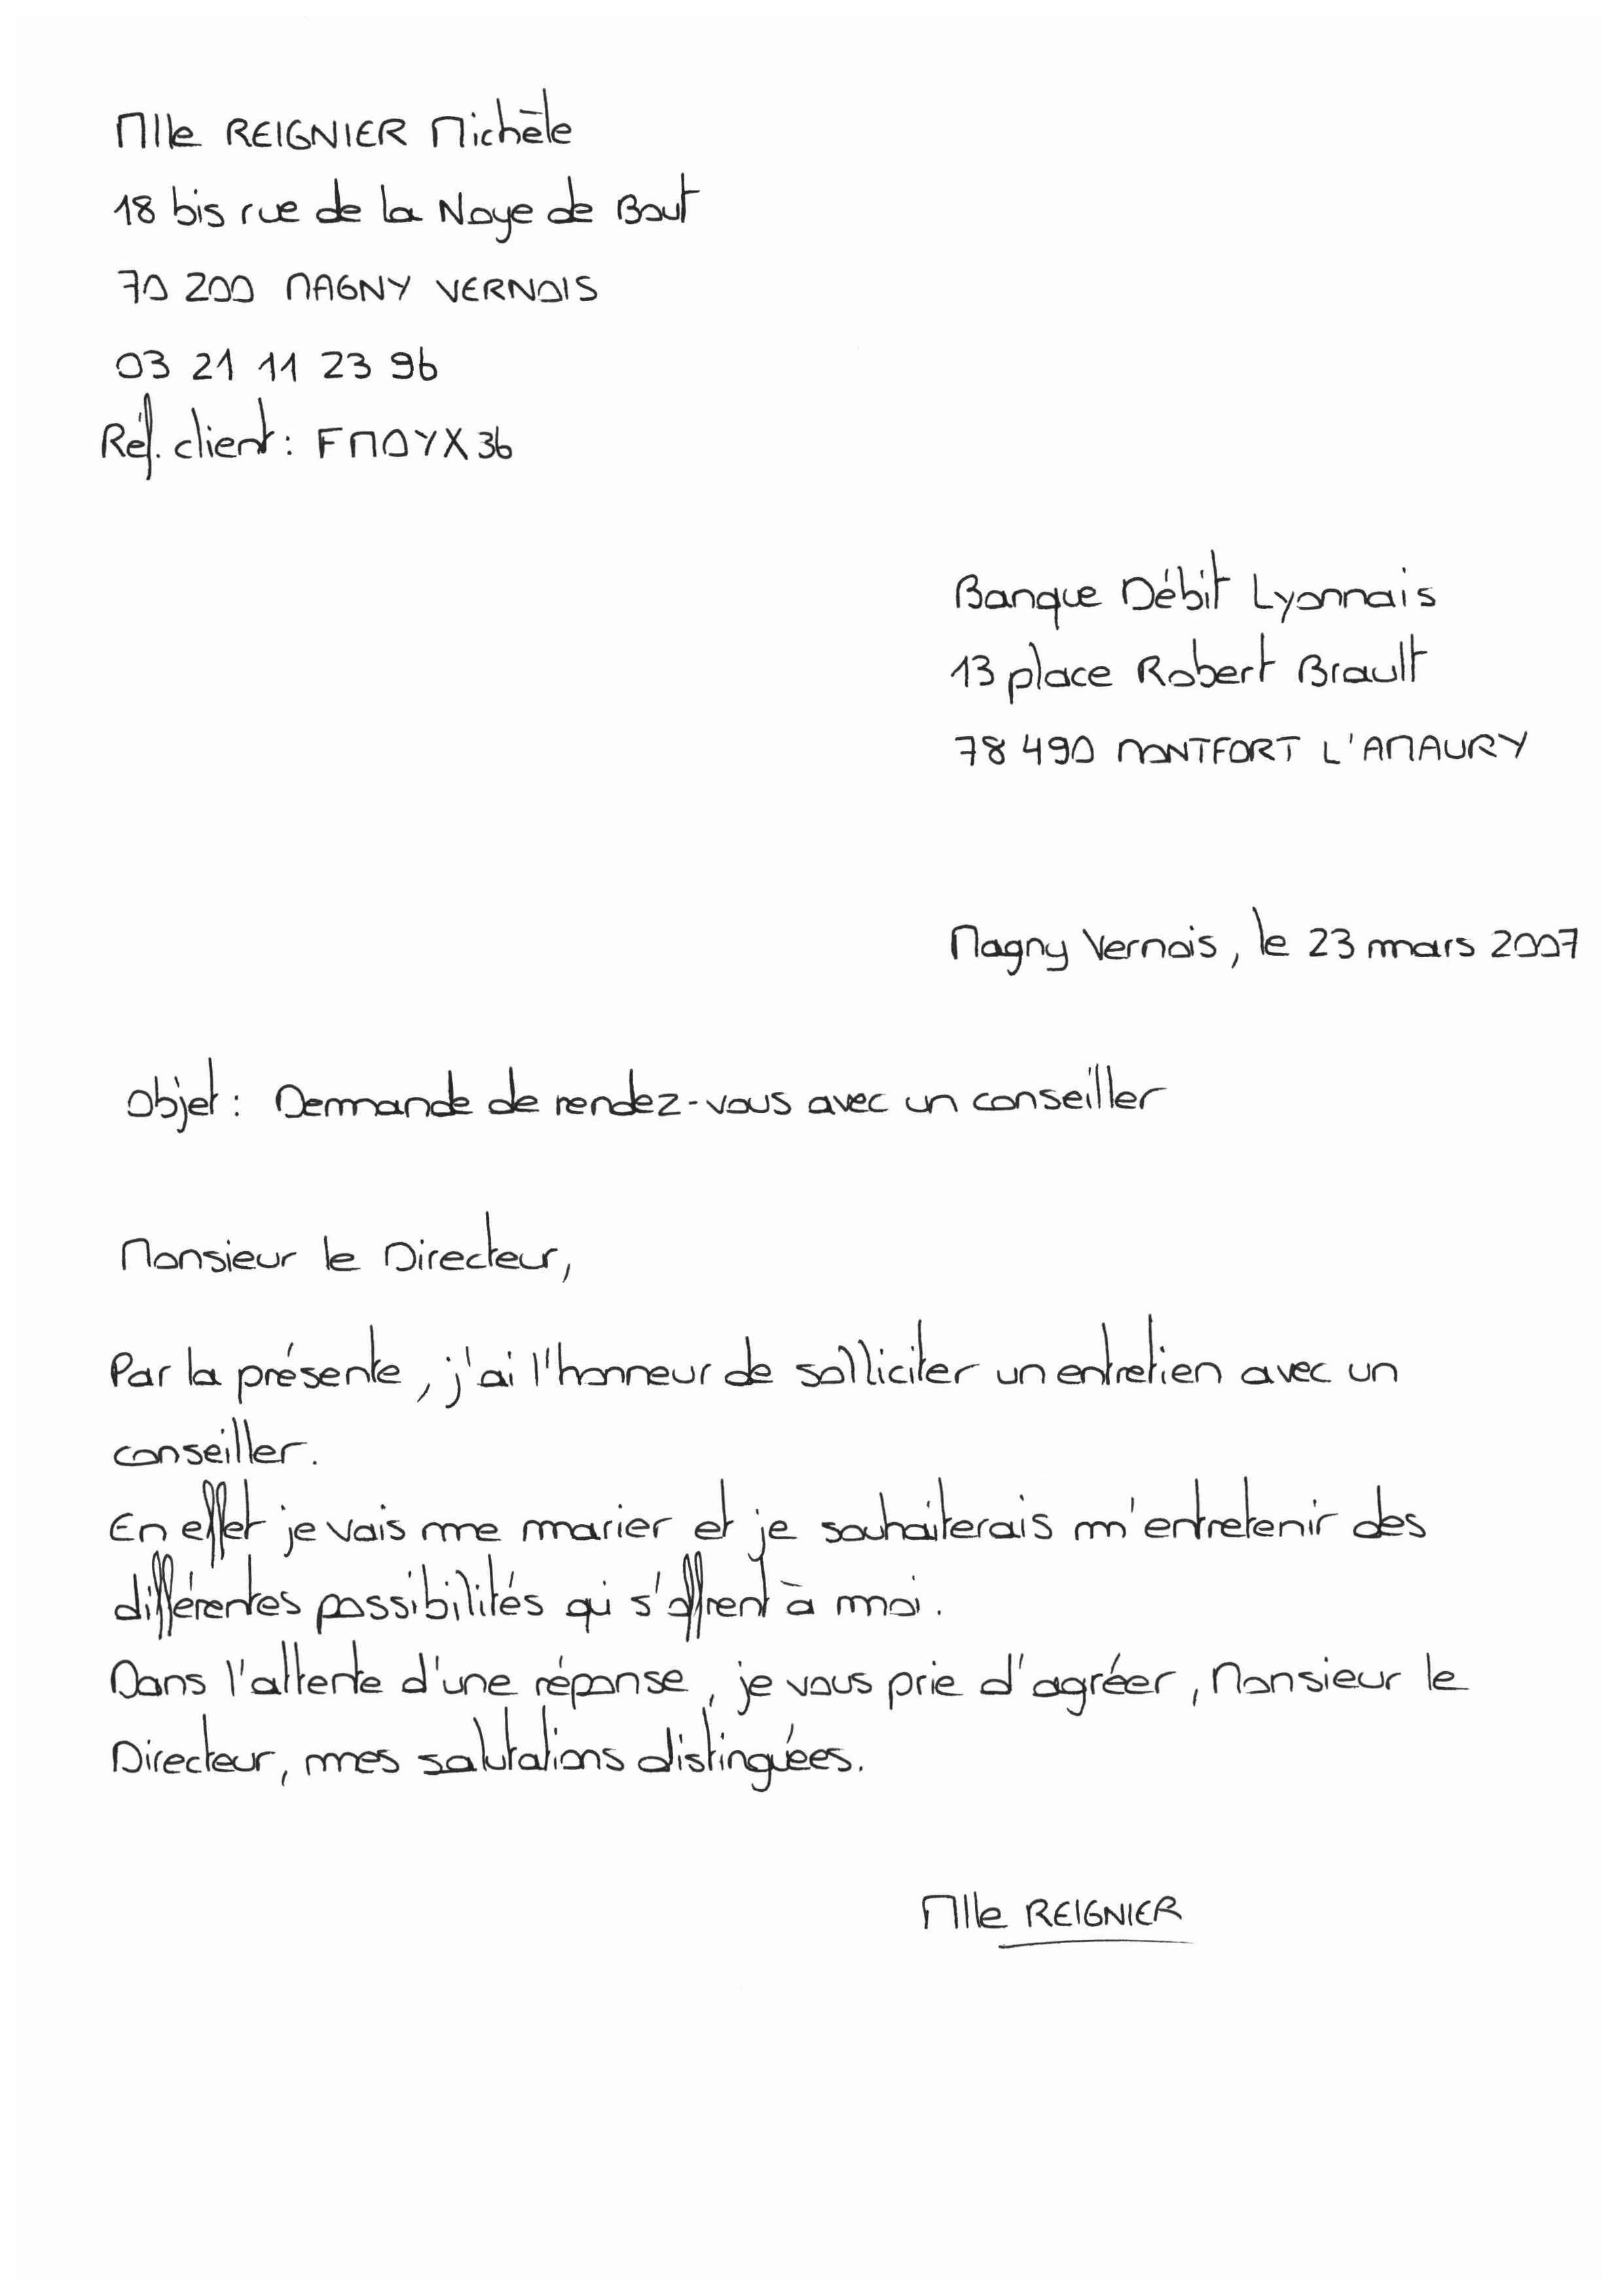 Mlle REIGNIER Michèle
18 bis rue de la Noye de Bout
70 200 MAGNY VERNOIS
03 21 11 23 96
Réf. client : FMOYX36
Banque Débit Lyonnais
13 place Robert Brault
78 490 MONTFORT L'AMAURY
Magny Vernois, le 23 mars 2007
Objet : Demande de rendez-vous avec un conseiller
Monsieur le Directeur,
Par la présente, j'ai l'honneur de solliciter un entretien avec un
conseiller.
En effet je vais me marier et je souhaiterais m'entretenir des
différentes possibilités qui s'offrent à moi.
Dans l'attente d'une réponse, je vous prie d'agréer, Monsieur le
Directeur, mes salutations distinguées.
Mlle REIGNIER